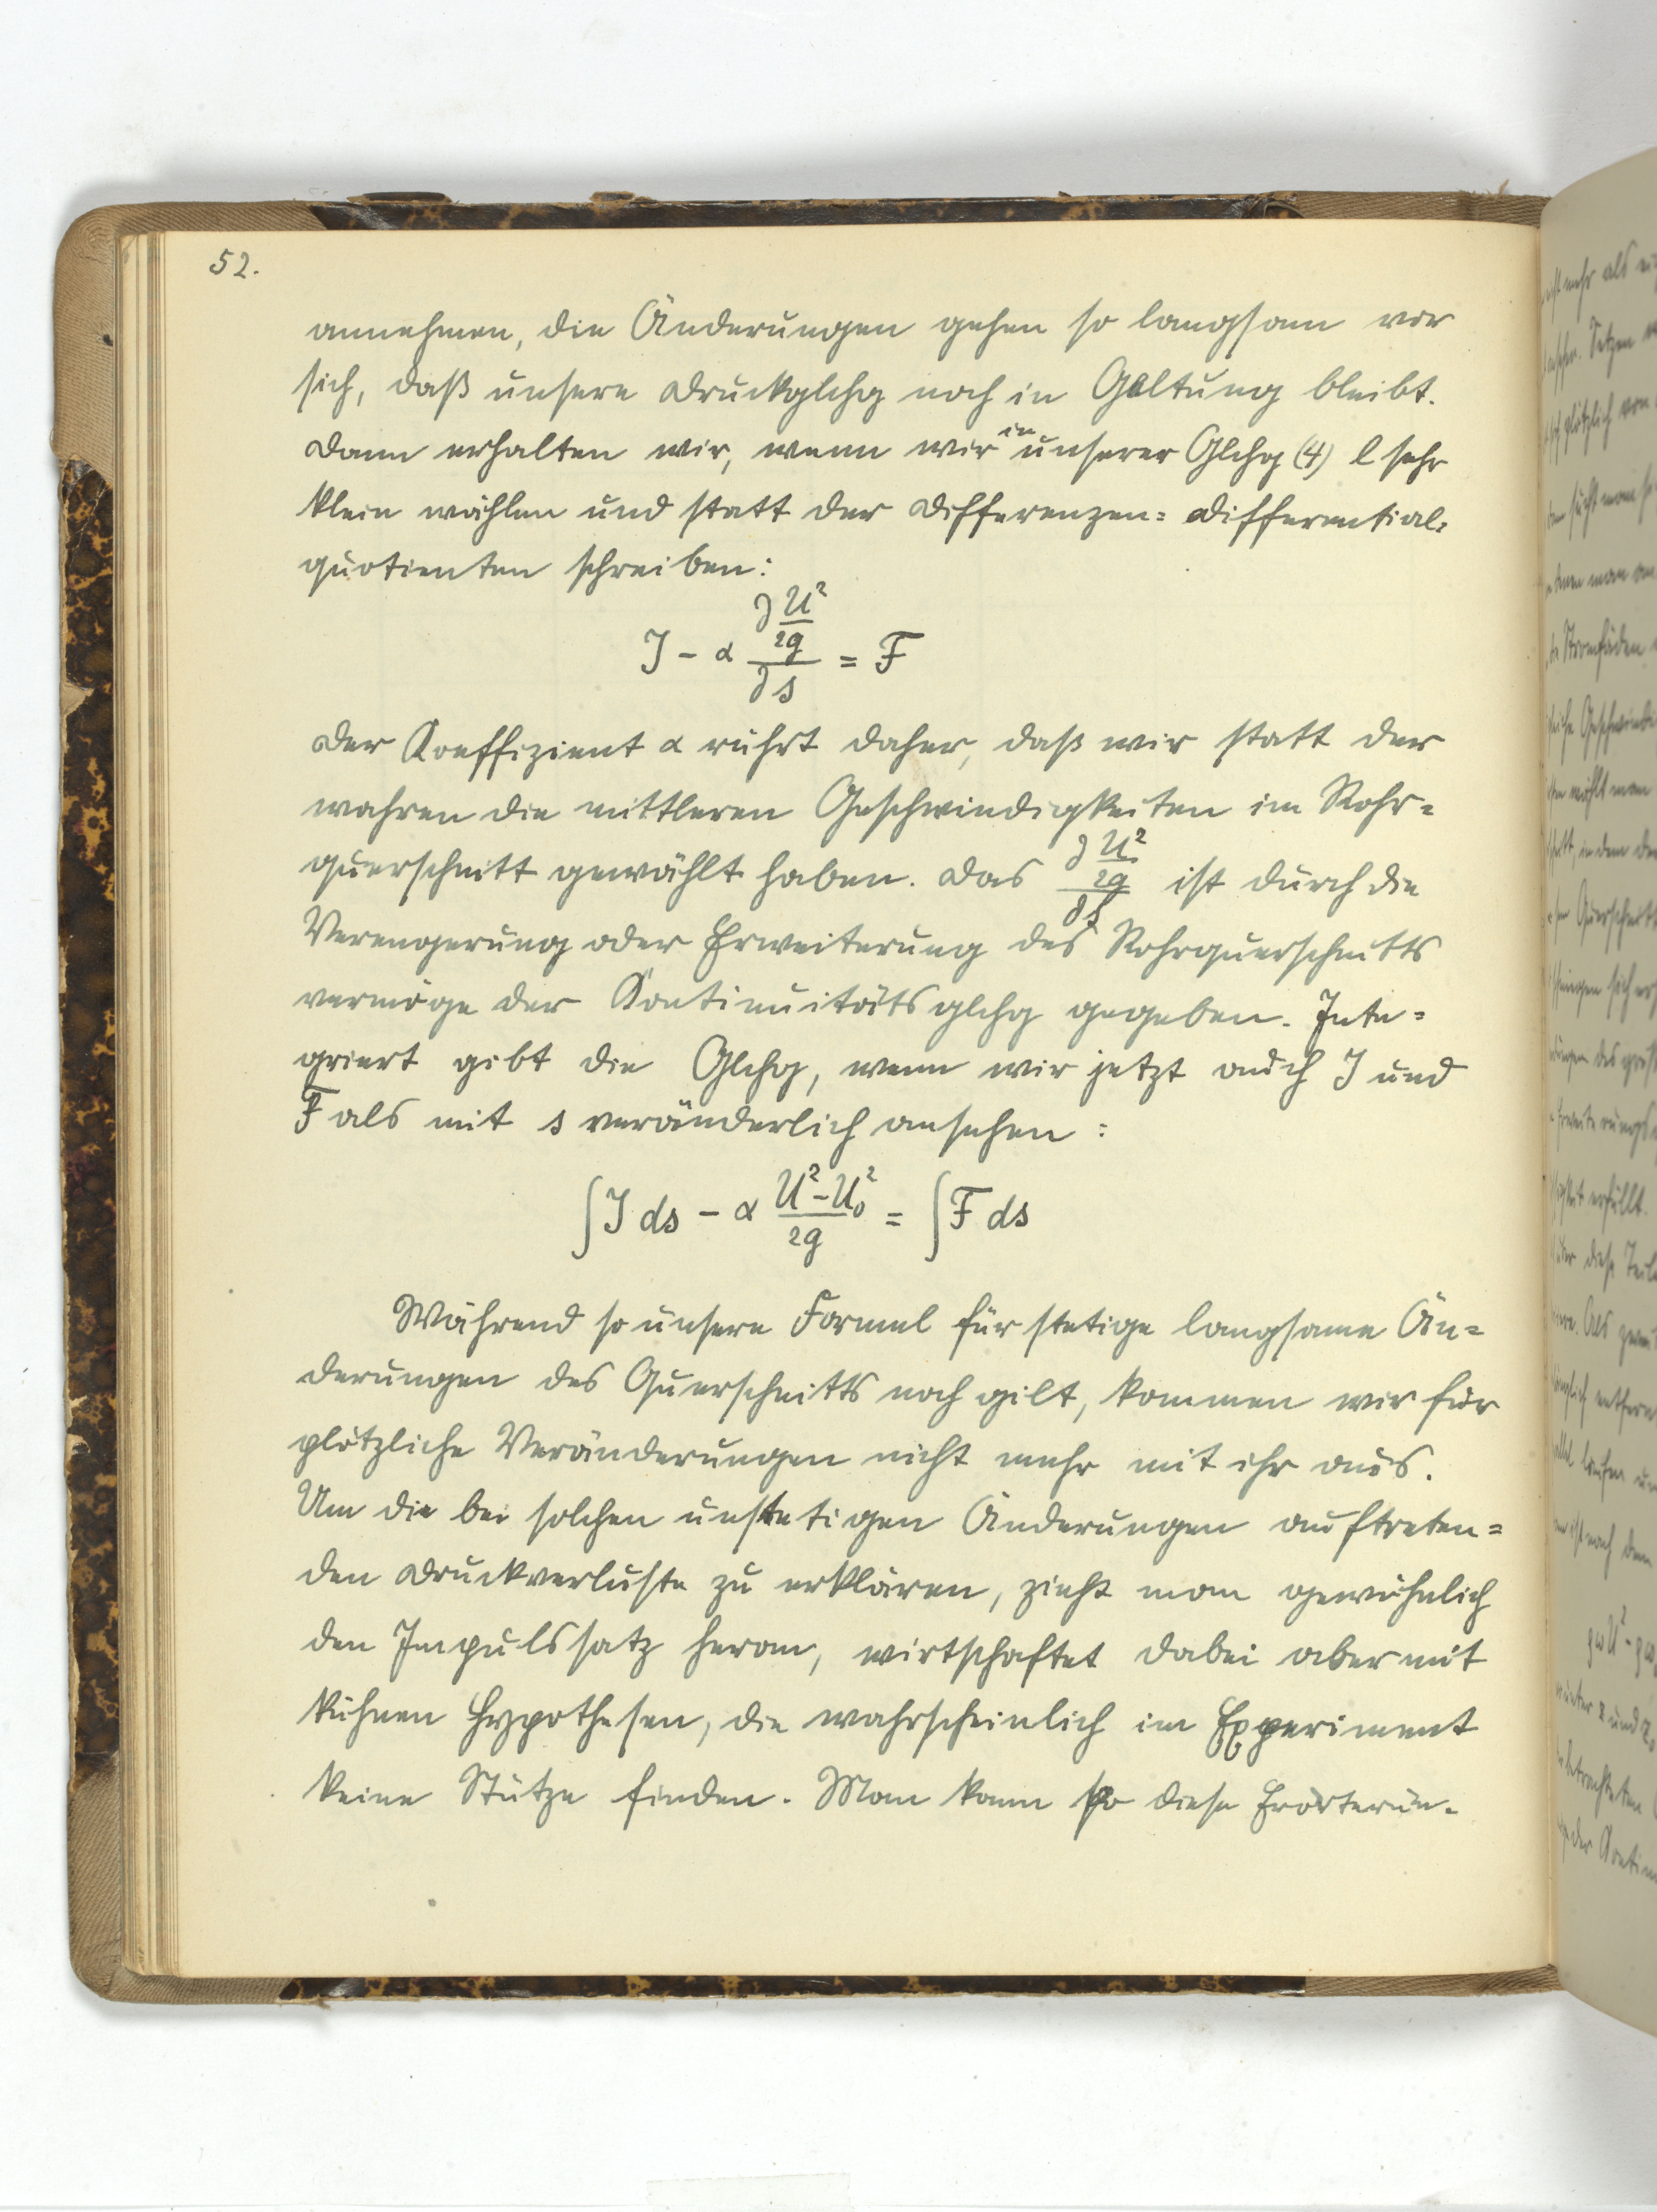 52.
annehmen, die Änderungen gehen so langsam vor
sich, daß unsere Druckglchg noch in Geltung bleibt.
Dann erhalten wir, wenn wir in unserer Glchg (4) l sehr
klein wählen und statt der Differenzen= Differential=
quotienten schreiben:
J - α ∂ U²/2g / ∂s = F
Der Koeffizient α rührt daher, daß wir statt der
wahren die mittleren Geschwindigkeiten im Rohr=
querschnitt gewählt haben. Das ∂ U²/2g / ∂s ist durch die
Verengerung oder Erweiterung des Rohrquerschnitts
vermöge der Kontinuitätsglchg gegeben. Inte=
griert gibt die Glchg, wenn wir jetzt auch J und
F als mit s veränderlich ansehen:
∫J ds - α U²-U₀²/2g = ∫F ds
Während so unsere Formel für stetige langsame Än=
derungen des Querschnitts noch gilt, kommen wir für
plötzliche Veränderungen nicht mehr mit ihr aus.
Um die bei solchen unstetigen Änderungen auftreten=
den Druckverluste zu erklären, zieht man gewöhnlich
den Impulssatz heran, wirtschaftet dabei aber mit
kühnen Hypothesen, die wahrscheinlich im Experiment
keine Stütze finden. Man kann so diese Erörterun-